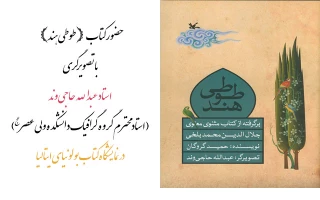 حضور کتاب «طوطی هند»
با تصویرگری
استاد عبدالله حاجی‌وند
(استاد محترم گروه گرافیک دانشکده ولی عصر(عج))
در نمایشگاه کتاب بولونیای ایتالیا
طوطی هند
برگرفته از کتاب مثنوی معنوی
جلال‌الدین محمد بلخی
نویسنده: حمید گروگان
تصویرگر: عبدالله حاجی‌وند